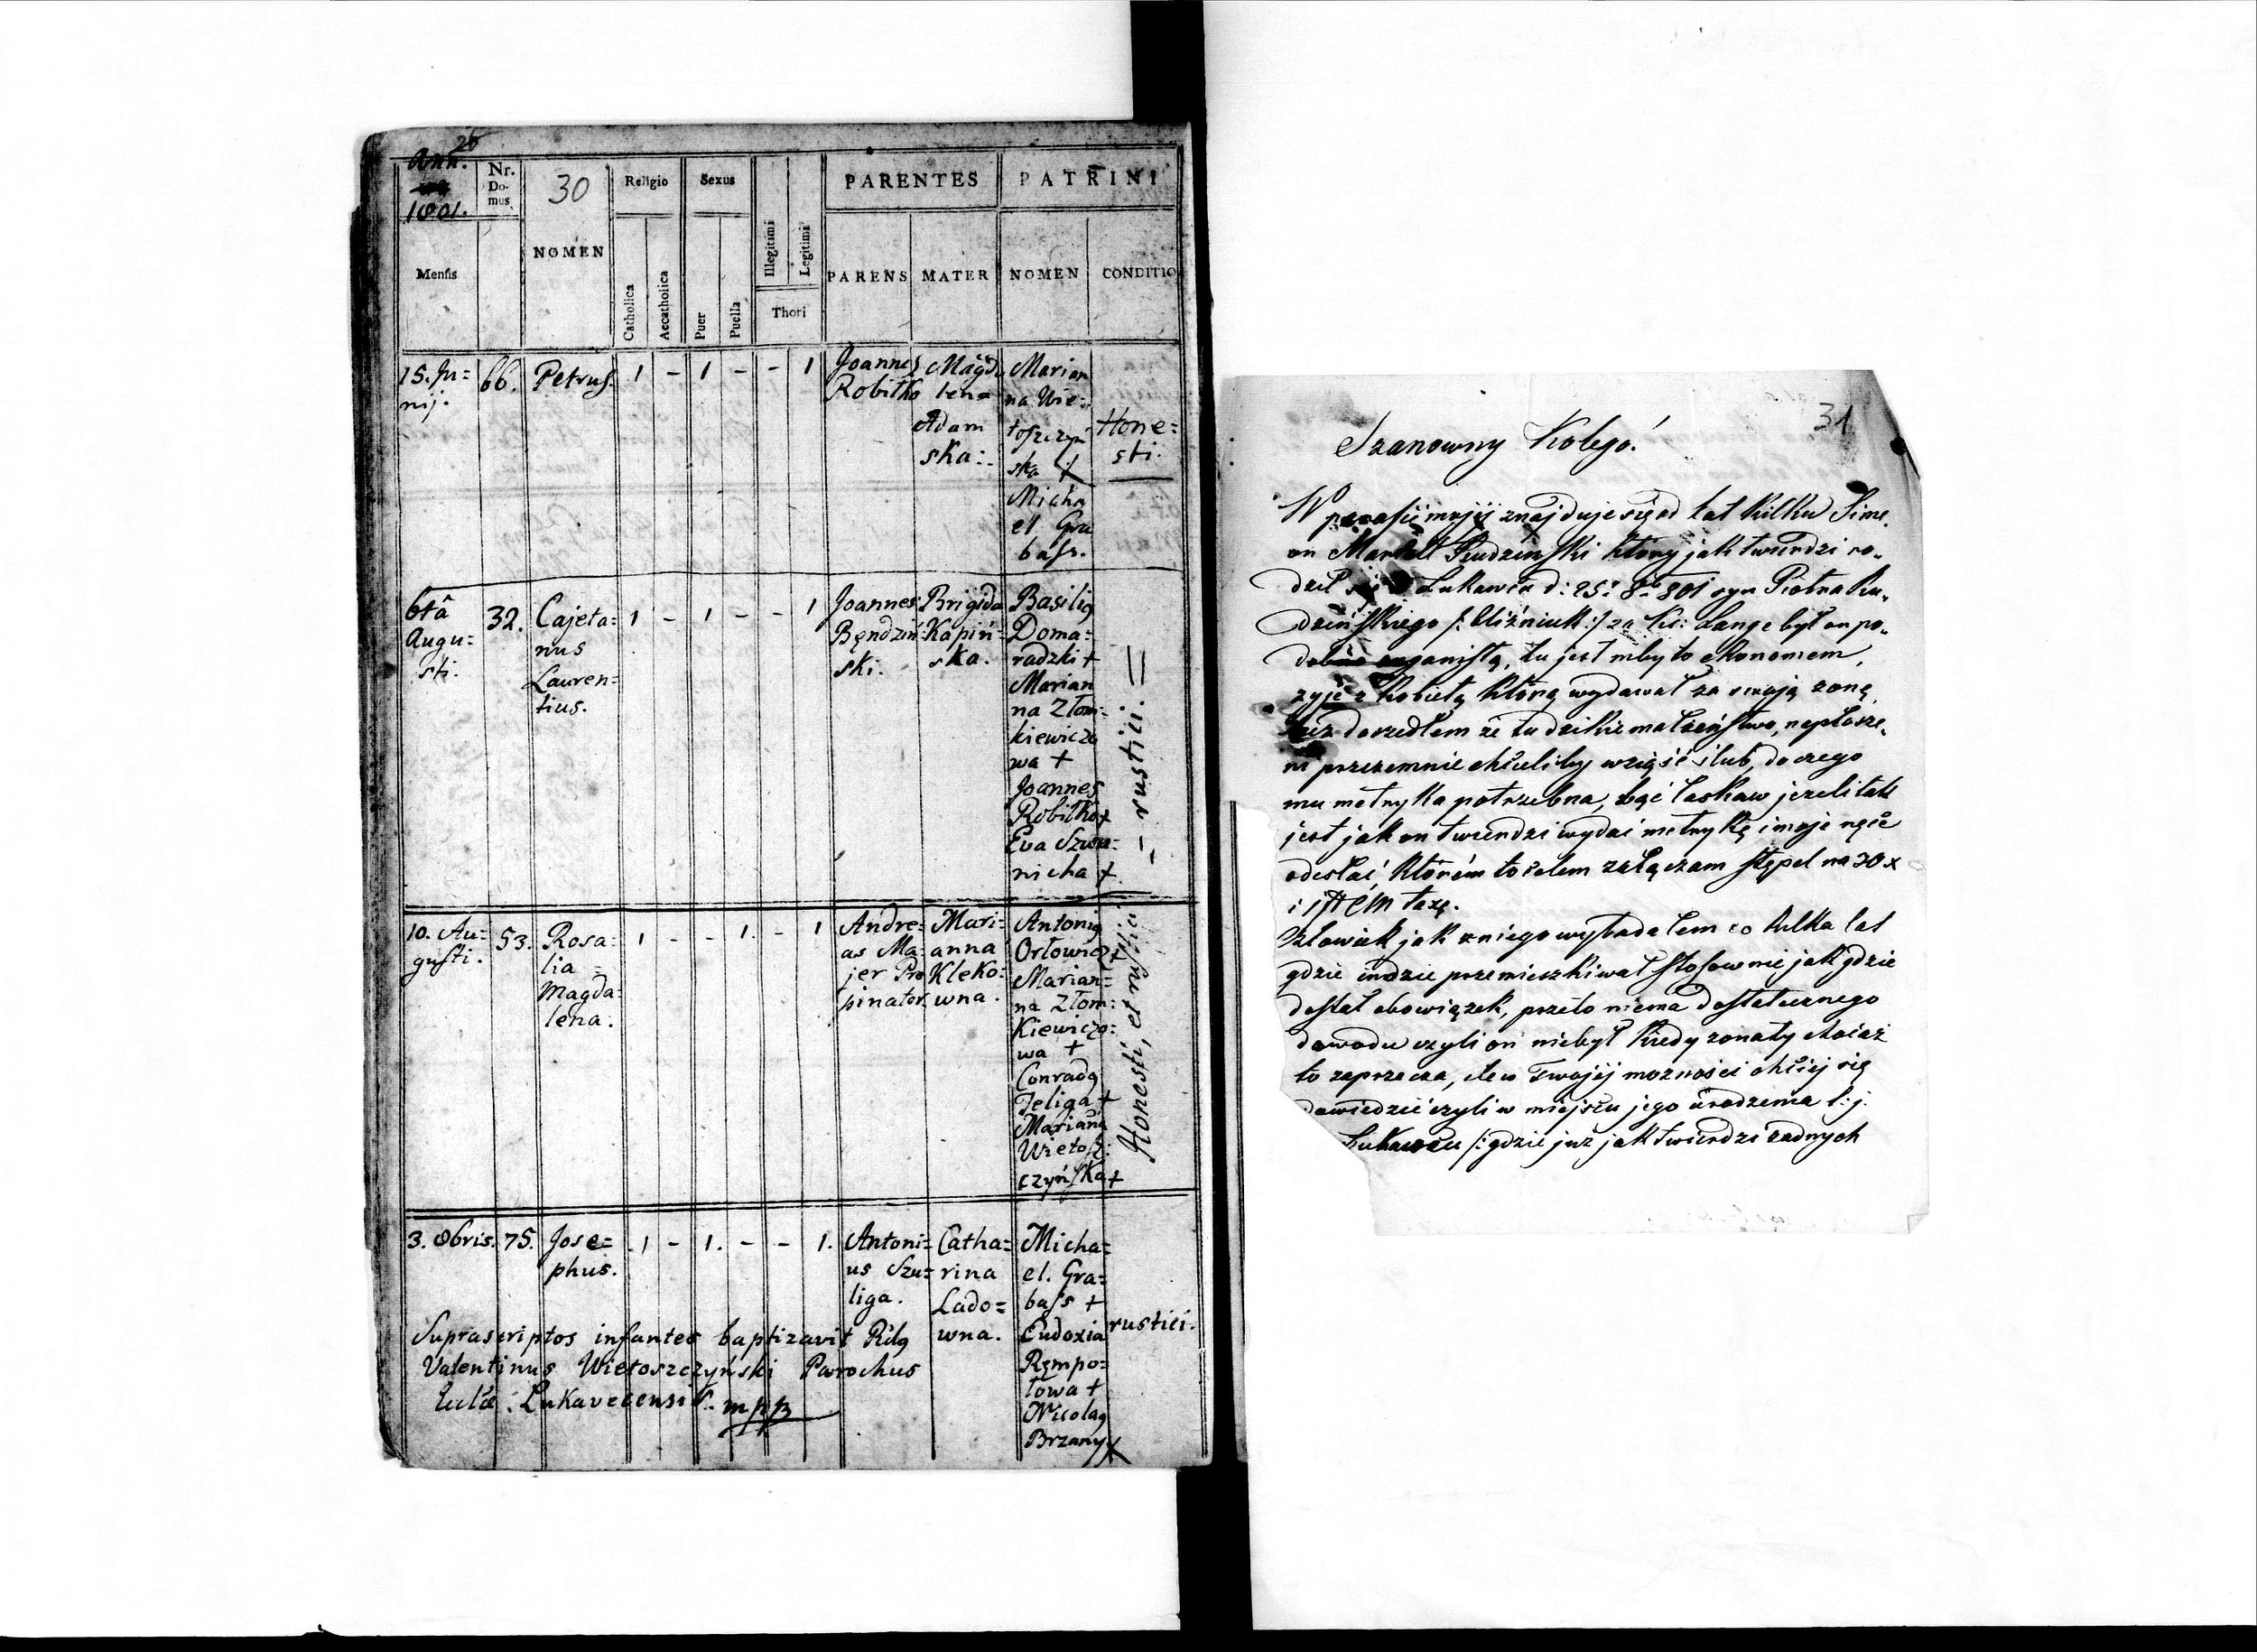 26
Ann.
1801.
Nr.
Do-
mus
30
Religio
Sexus
PARENTES
PATRINI
Mensis
NOMEN
Catholica
Accatholica
Puer
Puella
Illegitimi
Legitimi
Thori
PARENS
MATER
NOMEN
CONDITIO
15. Ju=
nij.
66.
Petrus.
1 - 1 - - 1
Joannes
Robitko
Magda
lena
Adam
ska:.
Marian
na Wie=
toszczyń
ska +
Micha
el Gra
bass.
Hone=
sti.
6tâ
Augu=
sti.
32.
Cajeta=
nus
Lauren=
tius.
1 - 1 - - 1
Joannes
Bendziń
ski.
Brigida
Kapiń=
ska.
Basilig
Doma=
radzki +
Marian
na Złom=
kiewiczo
wa +
Joannes
Robitko +
Eva Szwa=
nicha +
- rustici. =
10. Au=
gusti.
53.
Rosa=
lia =
Magda=
lena.
1 - - 1. - 1
Andre=
as Ma=
jer Pro
pinator.
Mari=
anna
Kleko=
wna.
Antonig
Orłowicz +
Marian=
na Złom=
Kiewiczo=
wa +
Conradg
Jeliga +
Mariana
Wietosz=
czyńska +
Honesti, et rustici
3. 8bris.
75.
Jose=
phus.
1 - 1. - - 1.
Antoni=
us Szu=
liga.
Catha=
rina
Lado=
wna.
Micha=
el. Gra=
bass +
Eudoxia
Rempo=
towa +
Nicolag
Brzany +
rustici.
Suprascriptos infantes baptizavit Rdg
Valentinus Wietoszczyński Parochus
Eccłae. Lukavecensis. mpp
31
Szanowny Kolego!
W parafii mojij znajduje się od lat kilku Sime
on Markel Rudzinski który jak twierdzi ro„
dził się w Łukawcu d: 25° 8b 801 syn Piotra Ru„
dzińskiego /: Uliźniuk :/ za Ks: Lange był on po„
dobno organistą, tu jest niby to ekonomem,
żyje z kobietą którą wydawał za swoją żonę,
lecz doszedłem że to dzikie małżeństwo, napłosze„
ni przezemnie chcieliby wziąść ślub, do czego
mu metryka potrzebna, bąć łaskaw jezeli tak
jest jak on twierdzi wydać metrykę i moje ręce
odesłać którém to celem załączam stępel na 30 x
i taxę.
Człowiek jak z niego wybadałem co kilka lat
gdzie indzie przemieszkiwał stosownie jak gdzie
dostał obowiązek, przeto niema dostatecznego
dowodu czyli on niebył kiedy żonaty chociaż
to zaprzecza, ile w Twojéj możności chciej się
dowiedzieć czyli w miejscu jego urodzenia t:j.
Łukawcu /: gdzie już jak twierdzi żadnych